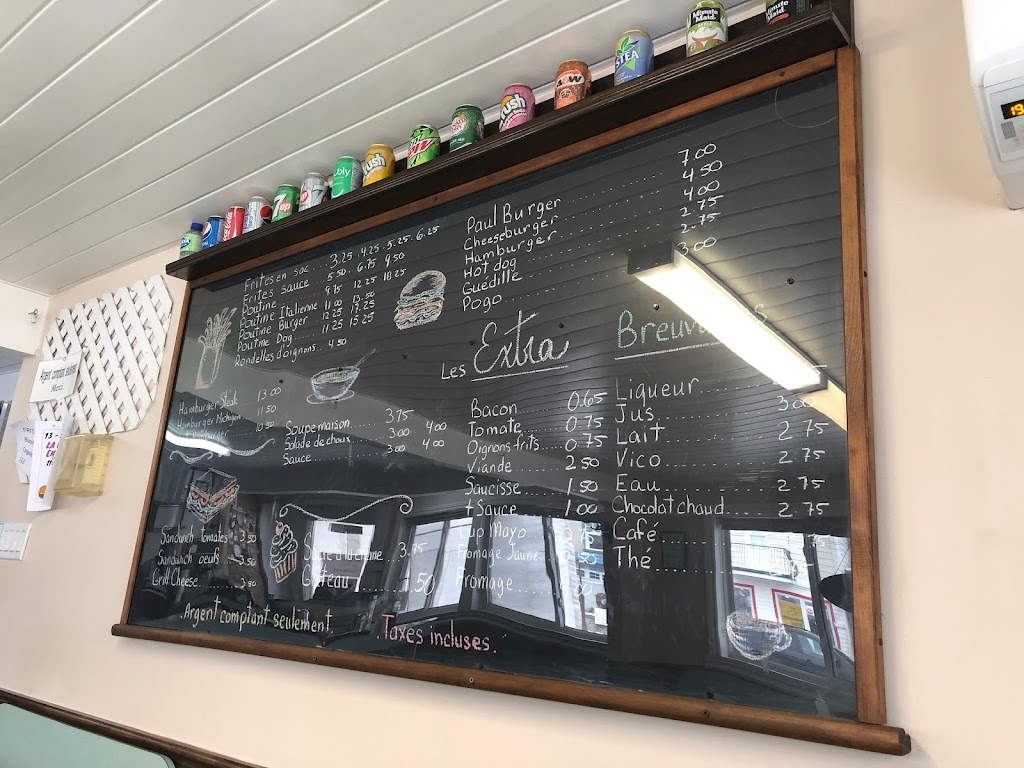 Frites en sac 3.25 . 4.25 . 5.25 . 6.25
Frites sauce 5.50 . 6.75 9.50
Poutine 9.75 12.25 18.25
Poutine Italienne 11.00 13.50
Poutine Burger 12.25 17.25
Poutine Dog 11.25 15.25
Rondelles d'oignons .. 4.50
Hamburger Steak 13.00
Hamburger Michigan 11.50
10.50
Soupe maison 3.75
Salade de choux 3.00 4.00
Sauce 3.00 4.00
Sandwich tomates 3.50
Sandwich oeufs 3.50
Grill Cheese 3.50
3.75
Gâteau 1.50
.Argent comptant seulement.
.Taxes incluses.
Paul Burger 7.00
Cheeseburger 4.50
Hamburger 4.00
Hot dog 2.75
Guedille 2.75
Pogo 3.00
Les Extra
Bacon 0.65
Tomate 0.75
Oignons frits 0.75
Viande 2.50
Saucisse 1.50
+ Sauce 1.00
Cup Mayo
Fromage Jaune
Fromage
Liqueur
Jus 3.00
Lait 2.75
Vico 2.75
Eau 2.75
Chocolat chaud 2.75
Café
Thé
Argent comptant seulement
Merci
7up
Crush
Crush
A&W
Minute Maid
Minute Maid
19